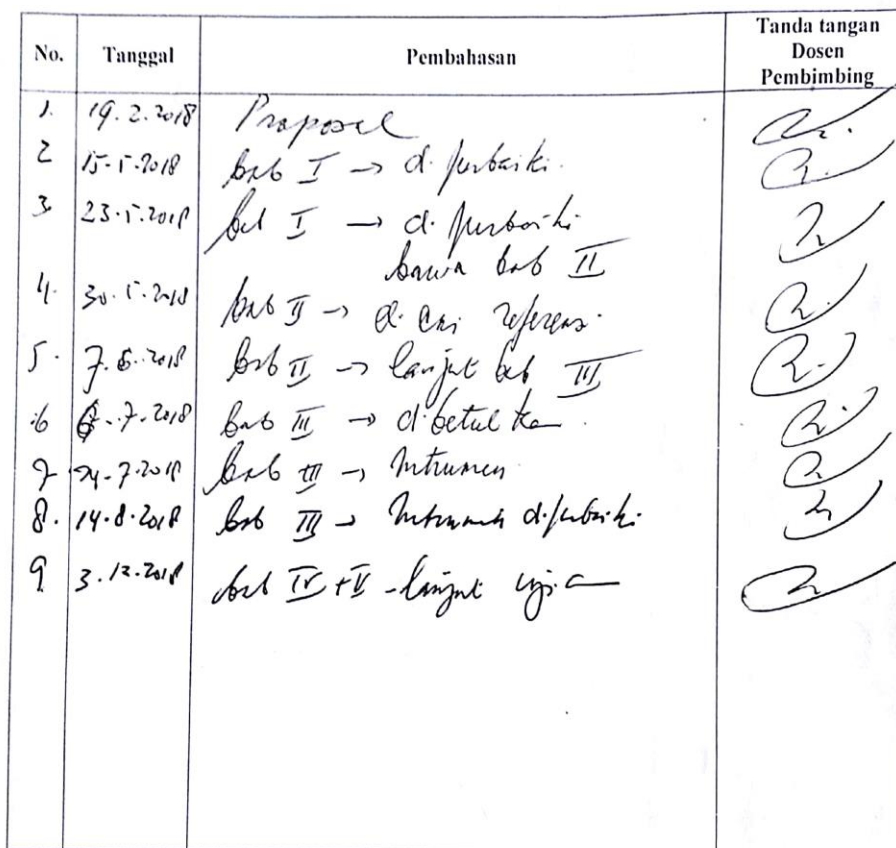 No. Tanggal Pembahasan Tanda tangan Dosen Pembimbing
1. 19.2.2018 Proposal
2 15-5-2018 bab I → diperbaiki.
3. 23.5.2018 bab I → diperbaiki
bawa bab II
4. 30.5.2018 bab II → dicari referensi.
5. 7.6.2018 bab II → lanjut bab III
6 -7-2018 bab III → dibetulkan
7 24-7-2018 bab III → Intrumen
8. 14.8.2018 bab III → Intrumen diperbaiki
9 3.12.2018 bab IV + V - lanjut ujian